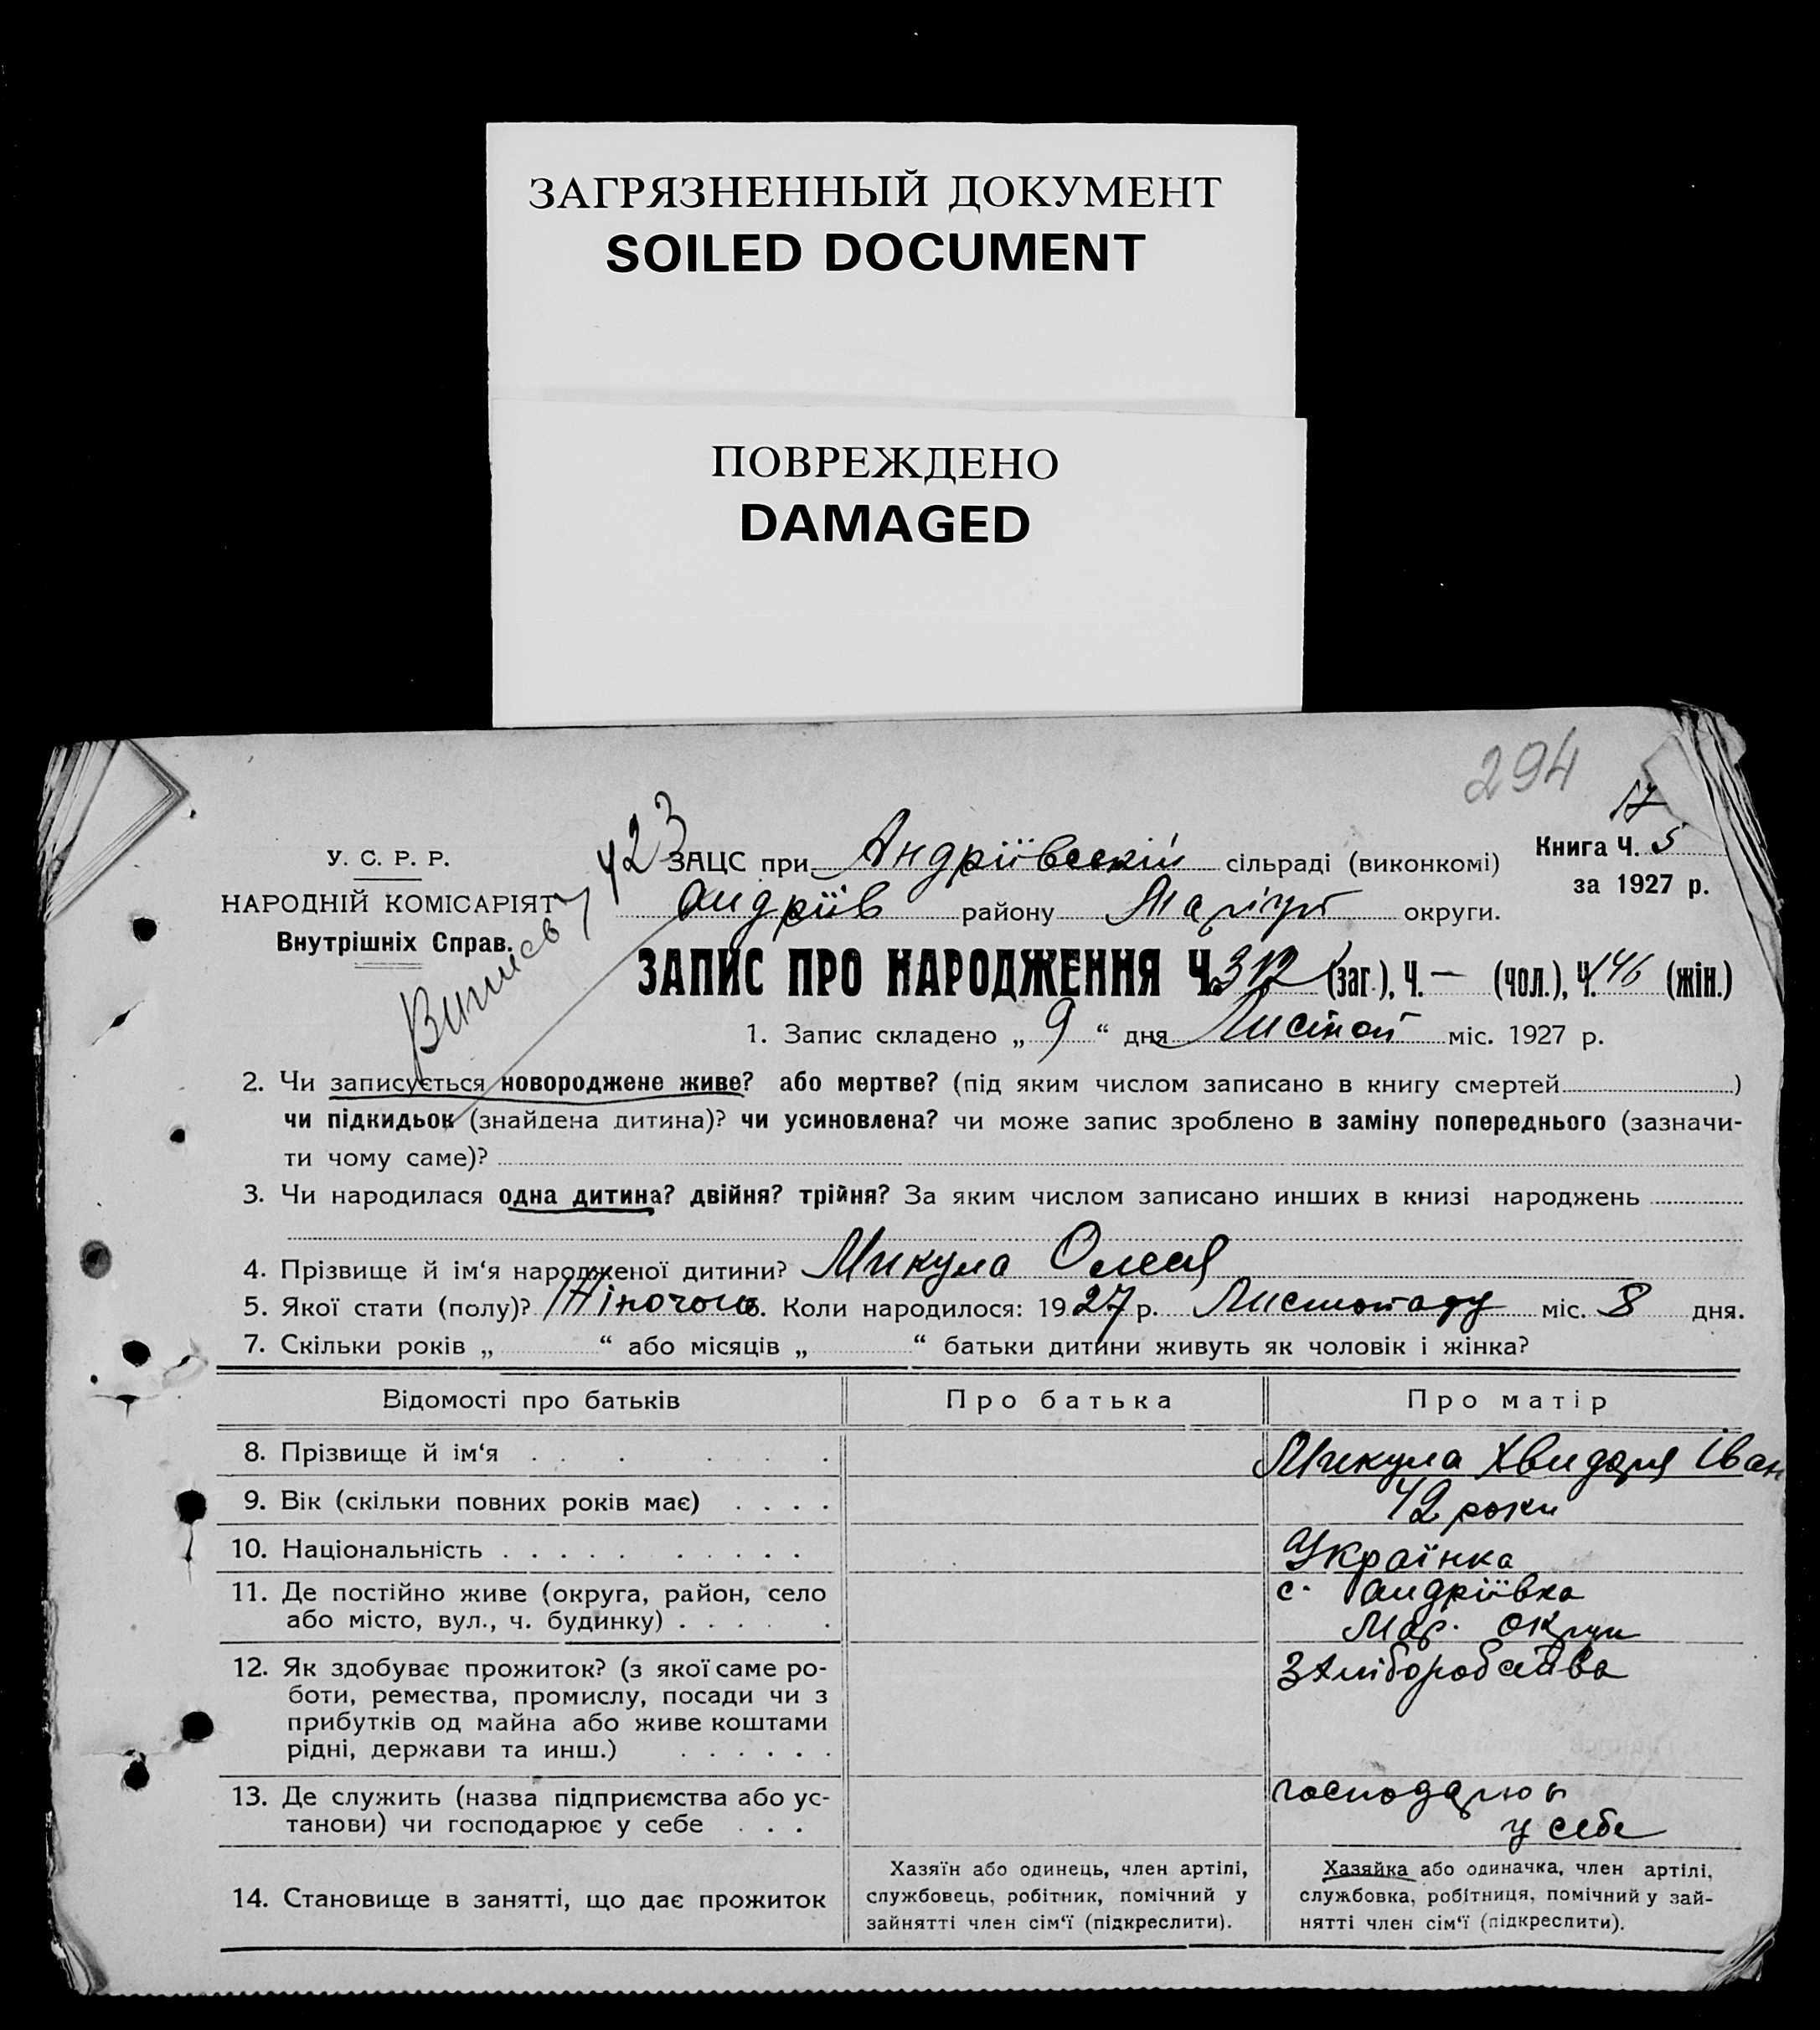 ЗАГРЯЗНЕННЫЙ ДОКУМЕНТ
SOILED DOCUMENT
ПОВРЕЖДЕНО
DAMAGED
294
17
У. С. Р. Р.
НАРОДНІЙ КОМІСАРІЯТ
Внутрішніх Справ.
423
ЗАЦС при Андріївській сільраді (виконкомі)
Книга Ч. 5
за 1927 р.
Андріїв району Маріуп округи.
Виписев
ЗАПИС ПРО НАРОДЖЕННЯ Ч. 312 (заг.), Ч. — (чол.), Ч. 146 (жін.)
1. Запис складено „ 9 “ дня Листоп міс. 1927 р.
2. Чи записується новороджене живе? або мертве? (під яким числом записано в книгу смертей )
чи підкидьок (знайдена дитина)? чи усиновлена? чи може запис зроблено в заміну попереднього (зазначи-
ти чому саме)?
3. Чи народилася одна дитина? двійня? трійня? За яким числом записано инших в книзі народжень
4. Прізвище й ім‘я народженої дитини? Микула Олеся
5. Якої стати (полу)? Жіночою 6. Коли народилося: 1927 р. Листопаду міс. 8 дня.
7. Скільки років „ “ або місяців „ “ батьки дитини живуть як чоловік і жінка?
Відомості про батьків Про батька Про матір
8. Прізвище й ім‘я . . . . . . Микула Хвидоря Іван
9. Вік (скільки повних років має) . . . . 42 роки
10. Національність . . . . . . . . . . Українка
11. Де постійно живе (округа, район, село с. Андріївка
або місто, вул., ч. будинку) . . . . . Мар. округи
12. Як здобуває прожиток? (з якої саме ро-
боти, ремества, промислу, посади чи з
прибутків од майна або живе коштами
рідні, держави та инш.) . . . . . .
13. Де служить (назва підприємства або ус- господарює
танови) чи господарює у себе . . . у себе
14. Становище в занятті, що дає прожиток
Хазяїн або одинець, член артілі,
службовець, робітник, помічний у
зайнятті член сім‘ї (підкреслити).
Хазяйка або одиначка, член артілі,
службовка, робітниця, помічний у зай-
нятті член сім‘ї (підкреслити).